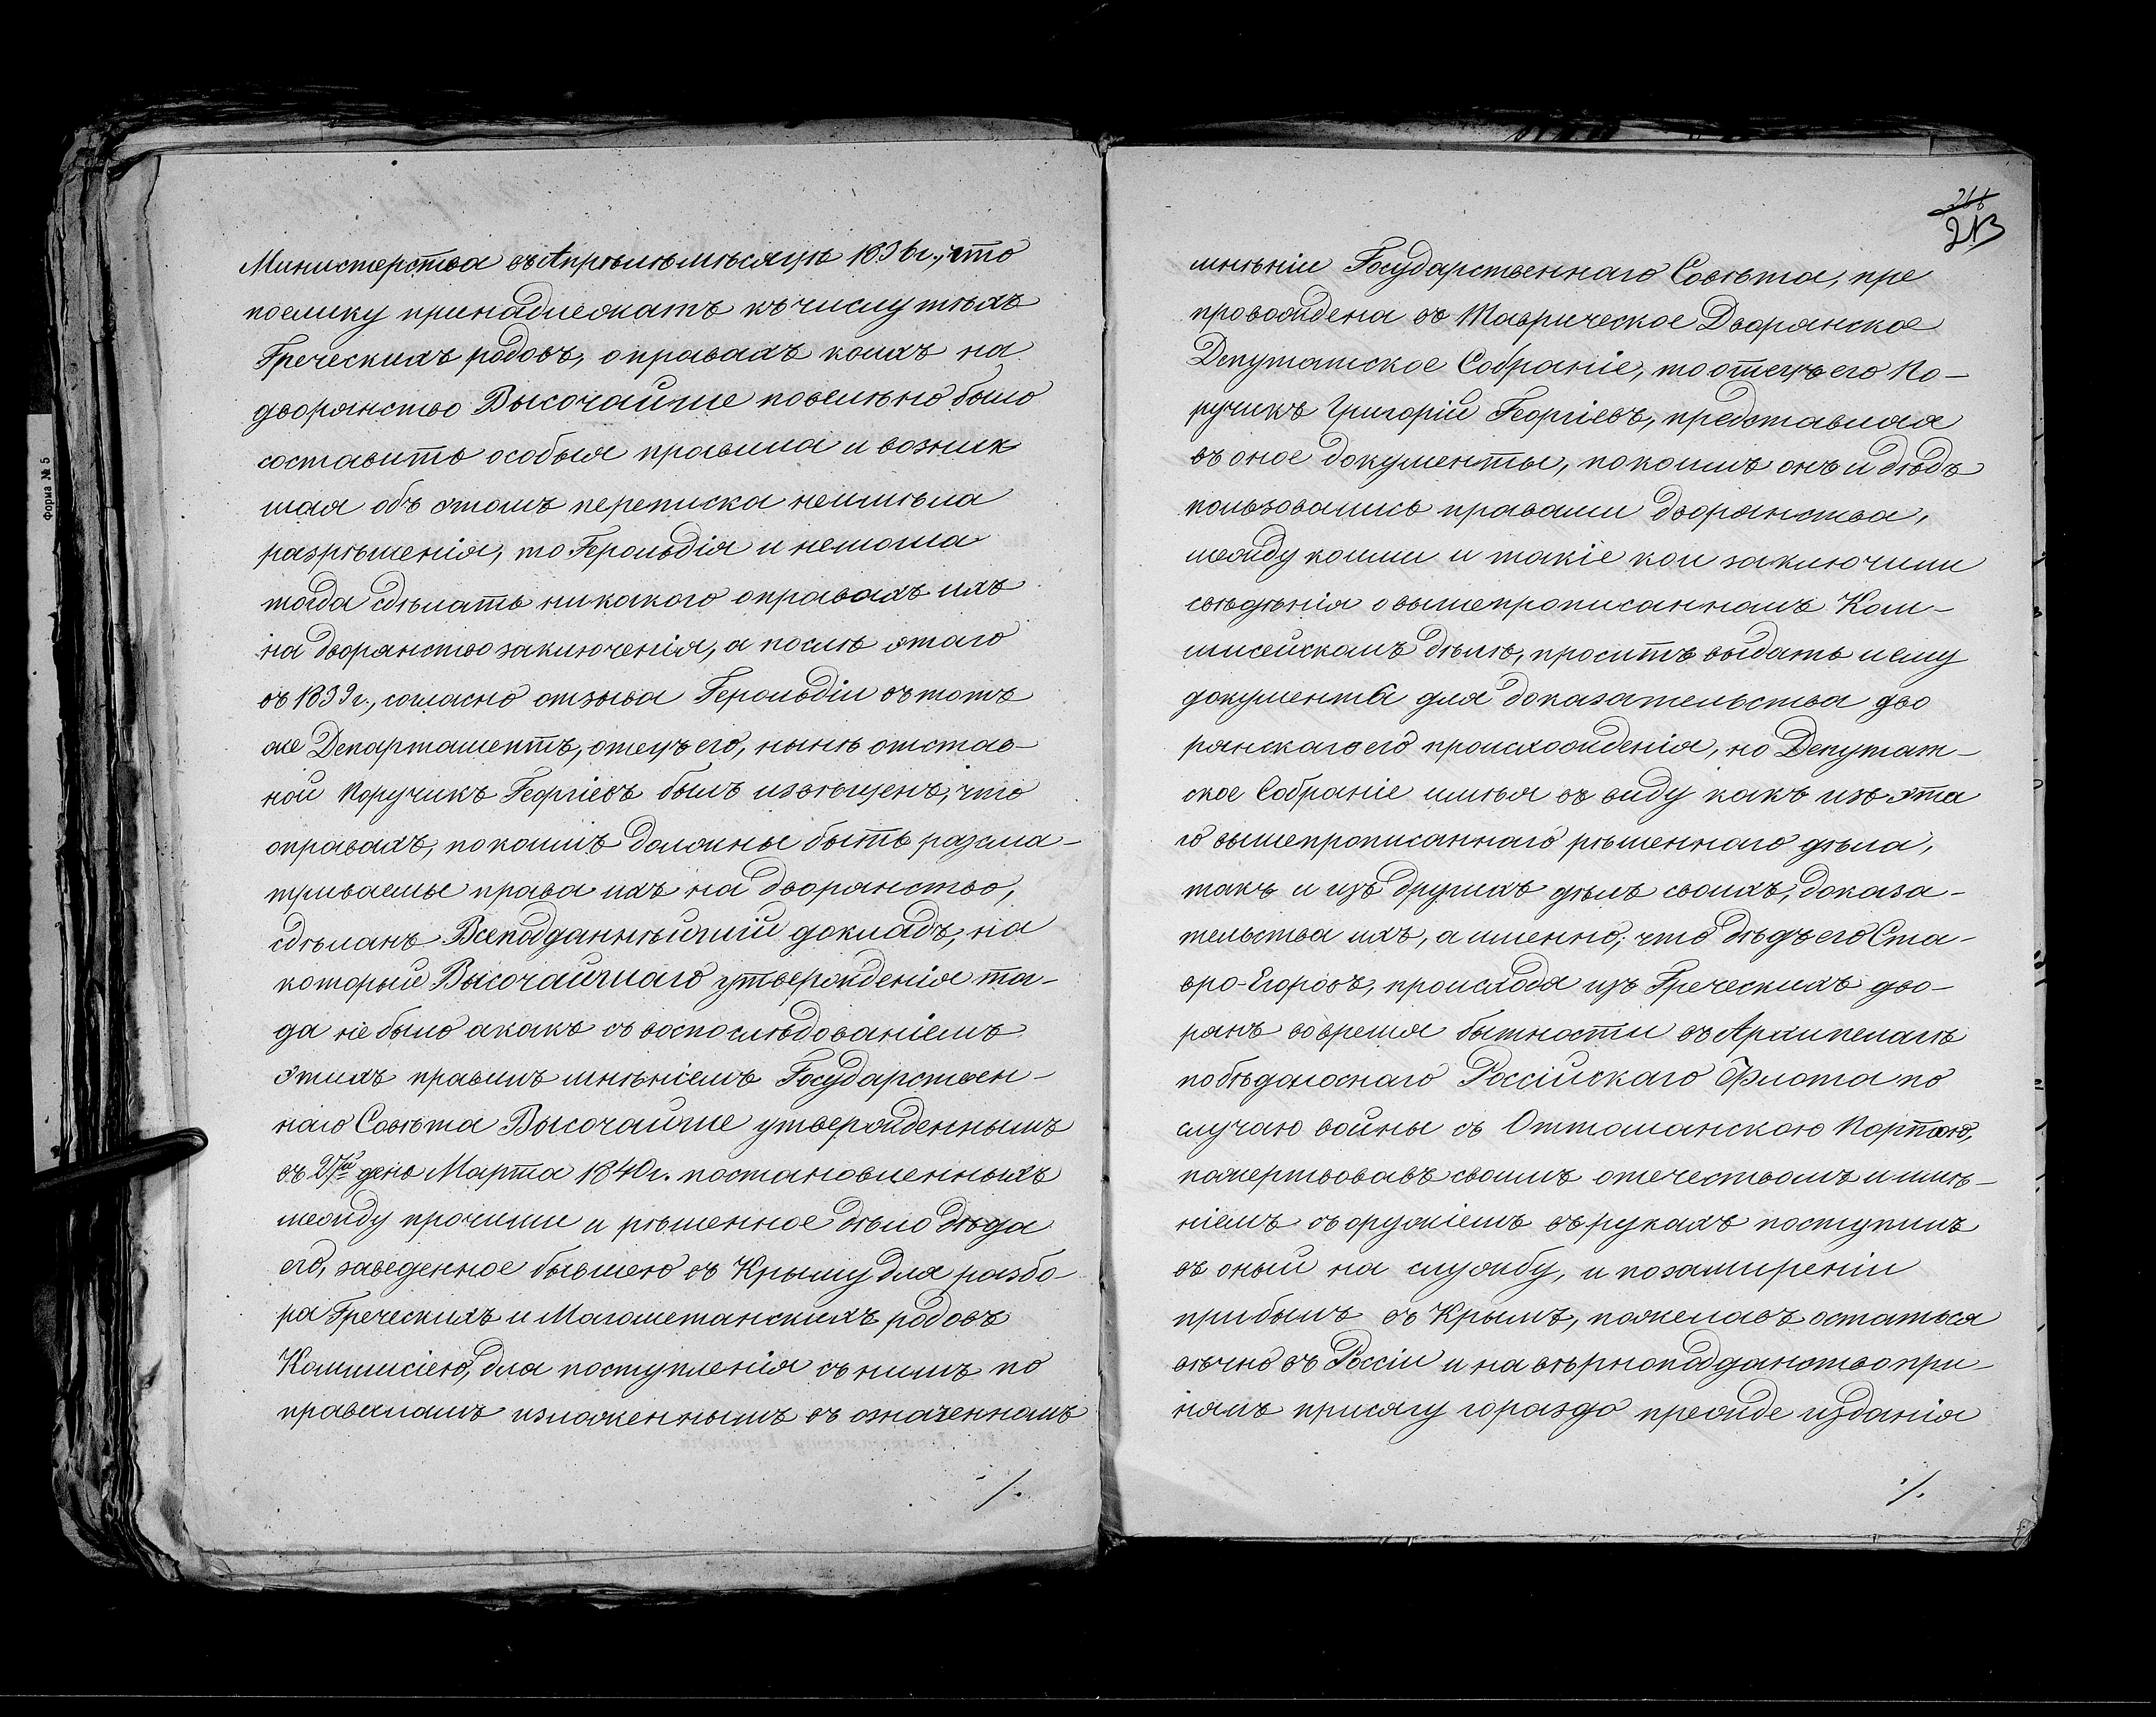 Министерства въ Апрѣлѣ мѣсяцѣ 1836 г., что
поелику принадлежатъ къ числу тѣхъ
Греческихъ родовъ, о правахъ коихъ на
дворянство Высочайше повелѣно было
составить особыя правила и возник
шая объ этомъ переписка не имѣла
разрѣшенія, то Герольдія и не могла
тогда сдѣлать никакого о правахъ ихъ
на дворянство заключенія, а послѣ этаго
въ 1839 г., согласно отзыва Герольдіи въ тотъ
же Департаментъ, отецъ его, нынѣ отстав-
ной Поручикъ Георгіевъ былъ извѣщенъ, что
о правахъ, по коимъ должны быть разсма-
триваемы права ихъ на дворянство,
сдѣланъ Всеподданнѣйшій докладъ, на
который Высочайшаго утвержденія тог-
да не было а какъ съ воспослѣдованіемъ
этихъ правилъ мнѣніемъ Государствен-
наго Совѣта Высочайше утвержденнымъ
въ 27й день Марта 1840 г. постановленныхъ
между прочими и рѣшенное дѣло дѣда
его, заведенное бывшею въ Крыму для разбо-
ра Греческихъ и Магометанскихъ родовъ
Коммисіею, для поступленія съ нимъ по
правиламъ изложеннымъ въ означенномъ
./.
266
213
мнѣніи Государственнаго Совѣта, пре
провождена въ Таврическое Дворянское
Депутатское Собраніе, то отецъ его По-
ручикъ Григорій Георгіевъ, представляя
въ оное документы, по коимъ онъ и дѣдъ
пользовались правами дворянства,
между коими и такіе кои заключили
свѣдѣнія о вышепрописанномъ Ком-
мисейскомъ дѣлѣ, проситъ выдать и ему
документъ для доказательства дво
рянскаго его происхожденія, но Депутат-
ское Собраніе имѣя въ виду какъ изъ эта
го вышепрописаннаго рѣшеннаго дѣла,
такъ и изъ другихъ дѣлъ своихъ, доказа-
тельства ихъ, а именно; что дѣдъ его Ста-
вро-Егоровъ, происходя изъ Греческихъ дво-
рянъ во время бытности въ Архипелагѣ
побѣдоноснаго Россійскаго Флота по
случаю войны съ Оттоманскою Портою,
пожертвовавъ своимъ отечествомъ и имѣ-
ніемъ съ оружіемъ въ рукахъ поступилъ
въ оный на службу, и по замиреніи
прибылъ въ Крымъ, пожелавъ остаться
вѣчно въ Россіи и на вѣрноподданство при-
нялъ присягу гораздо прежде изданія
./.
Форма № 5